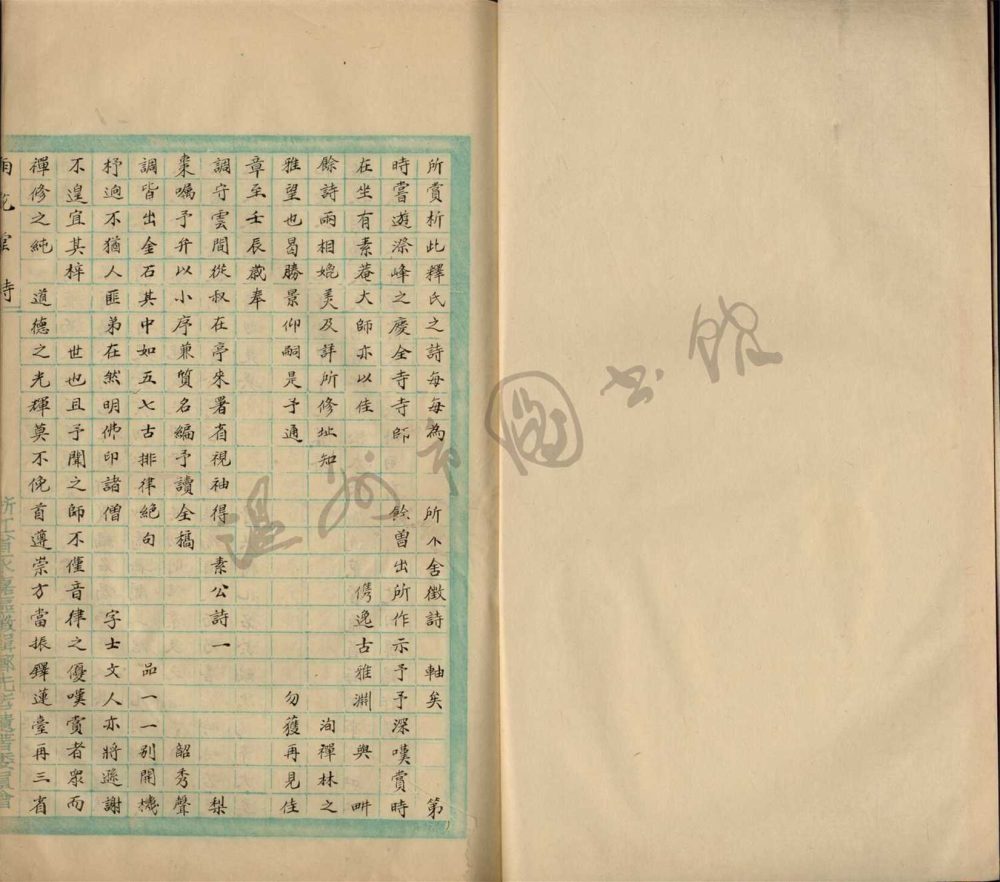 所賞析此釋氏之詩每每為　　所不舍徵詩　軸矣　　　第
時嘗遊滁峰之慶全寺寺師　　餘曾出所作示予予深嘆賞時
在坐有素菴大師亦以佳　　　　　　　儁逸古雅淵與
餘詩兩相媲美及詳所修址知　　　　　　　　　洵禪林之
雅望也曷勝景仰嗣是予通　　　　　　　　　勿獲再見佳
章至壬辰歲奉
調守雲間從叔在亭來署省視袖得　素公詩一　　　　　梨
棗囑予弁以小序兼質名編予讀全稿　　　　　　　韶秀聲
調皆出金石其中如五七古排律絕句　　　　品一一別開機
杼逈不猶人匪弟在然明佛印諸僧　　　字士文人亦將遜謝
不遑宜其梓　　世也且予聞之師不僅音律之優嘆賞者眾而
禪修之純　道德之光輝莫不俛首遵崇方當振鐸蓮臺再三省
雨花堂詩
浙江省永嘉區徵輯鄉先哲遺著委員會
温州市圖書館